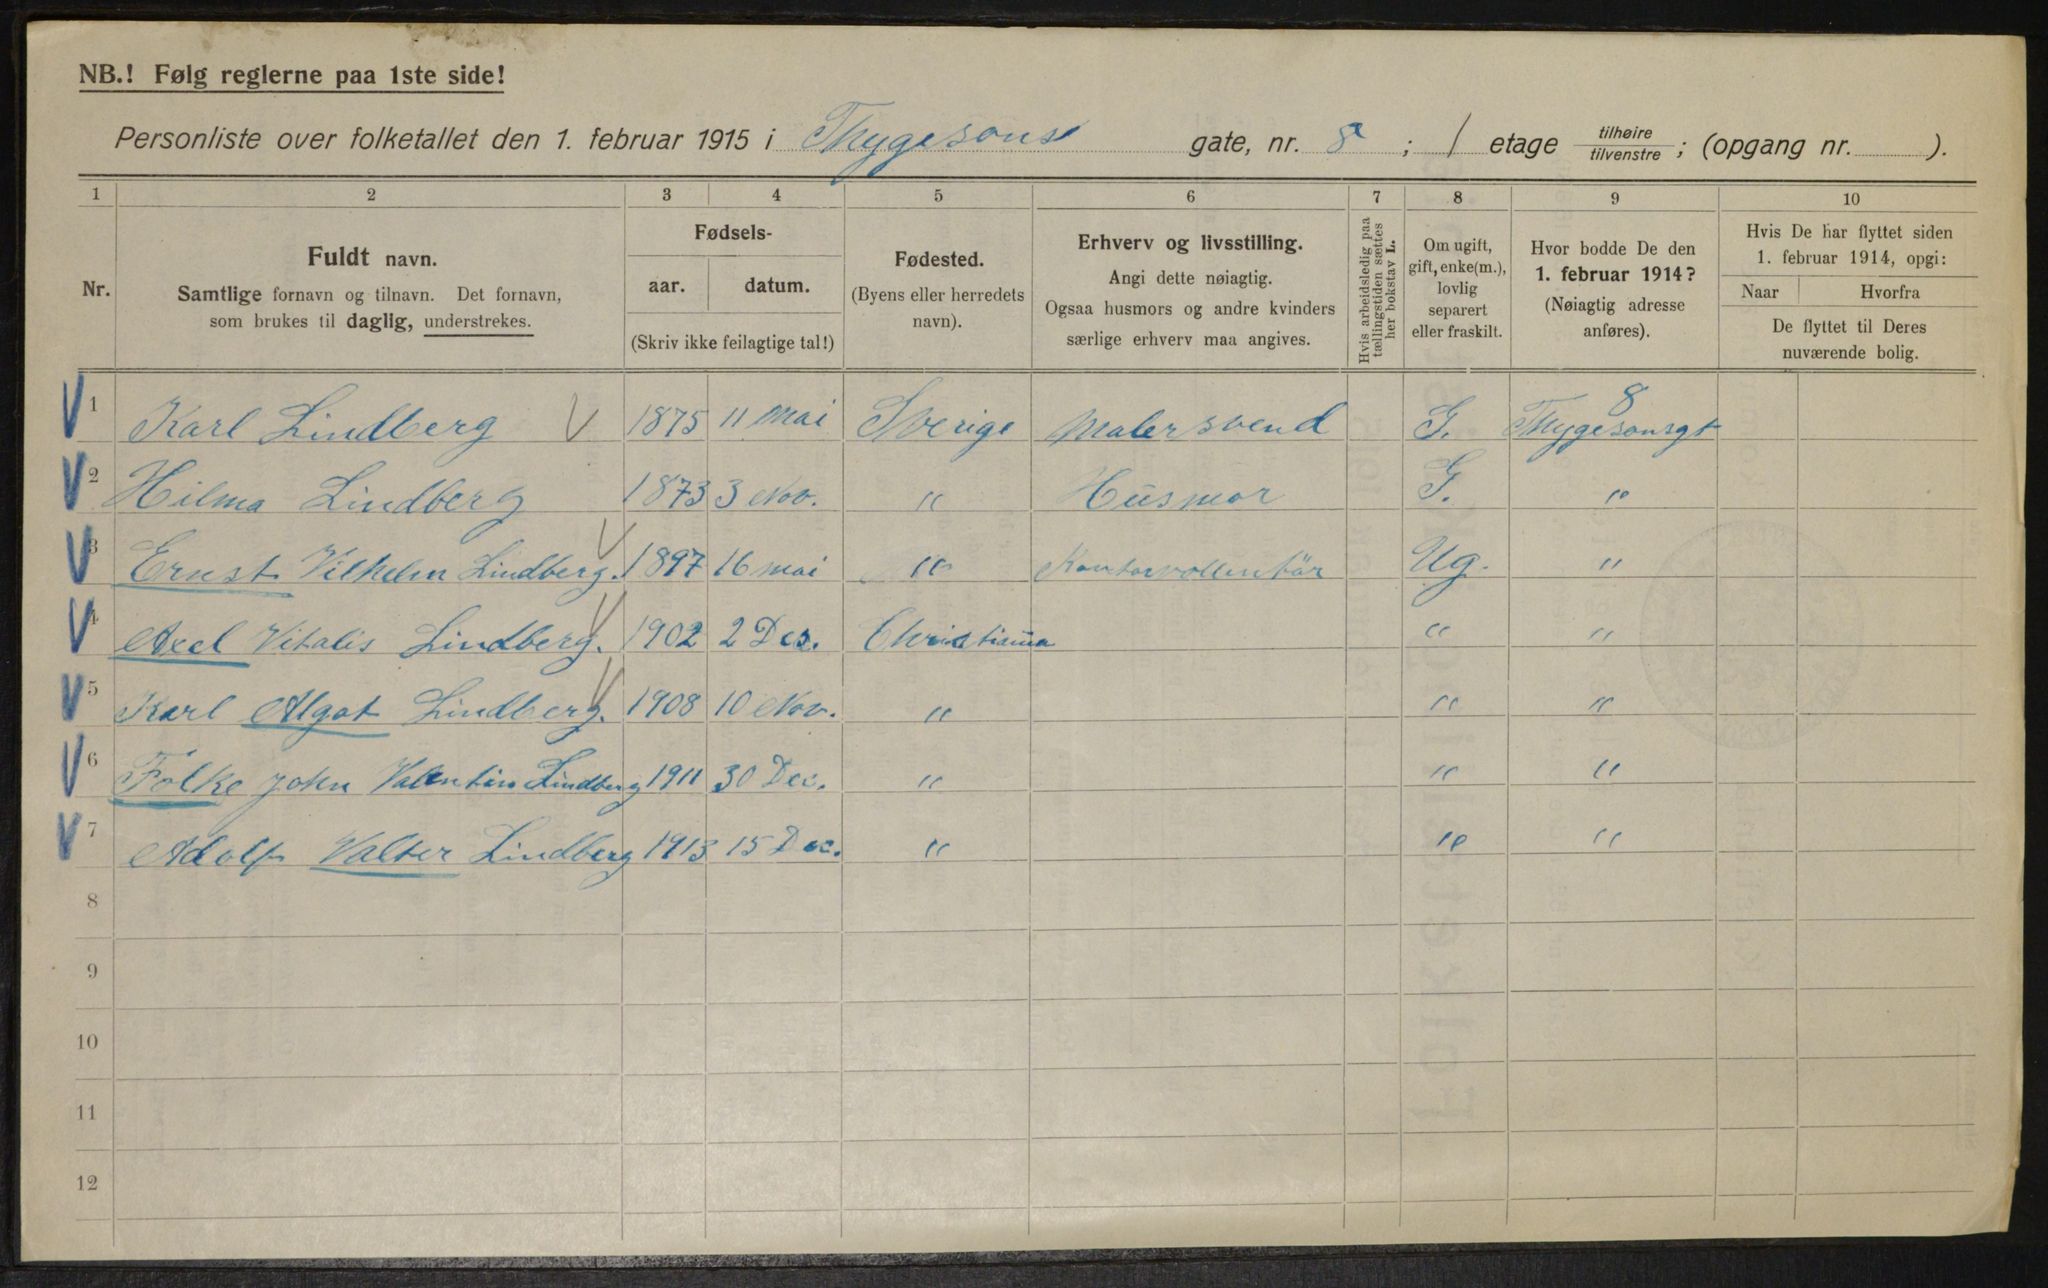 NB.! Følg reglerne paa 1ste side!
Personliste over folketallet den 1. februar 1915 i Thygesons gate, nr. 8 ; 1 etage tilhøire / tilvenstre ; (opgang nr. ).
1 2 3 4 5 6 7 8 9 10
Nr.
Fuldt navn.
Samtlige fornavn og tilnavn. Det fornavn,
som brukes til daglig, understrekes.
Fødsels-
aar. datum.
(Skriv ikke feilagtige tal!)
Fødested.
(Byens eller herredets
navn).
Erhverv og livsstilling.
Angi dette nøiagtig.
Ogsaa husmors og andre kvinders
særlige erhverv maa angives.
Hvis arbeidsledig paa
tællingstiden sættes
her bokstav L.
Om ugift,
gift, enke(m.),
lovlig
separert
eller fraskilt.
Hvor bodde De den
1. februar 1914?
(Nøiagtig adresse
anføres).
Hvis De har flyttet siden
1. februar 1914, opgi:
Naar Hvorfra
De flyttet til Deres
nuværende bolig.
1 Karl Lindberg 1875 11 mai Sverige Malersvend G. Thygesonsgt 8
2 Hilma Lindberg 1873 3 Nov. " Husmor G. "
3 Ernst Vilhelm Lindberg. 1897 16 mai " Kontorvollentär Ug. "
4 Axel Vitalis Lindberg. 1902 2 Des. Christiania " "
5 Karl Algot Lindberg. 1908 10 Nov. " " "
6 Folke John Valentin Lindberg 1911 30 Dec. " " "
7 Adolf Valter Lindberg 1913 15 Dec. " " "
8
9
10
11
12